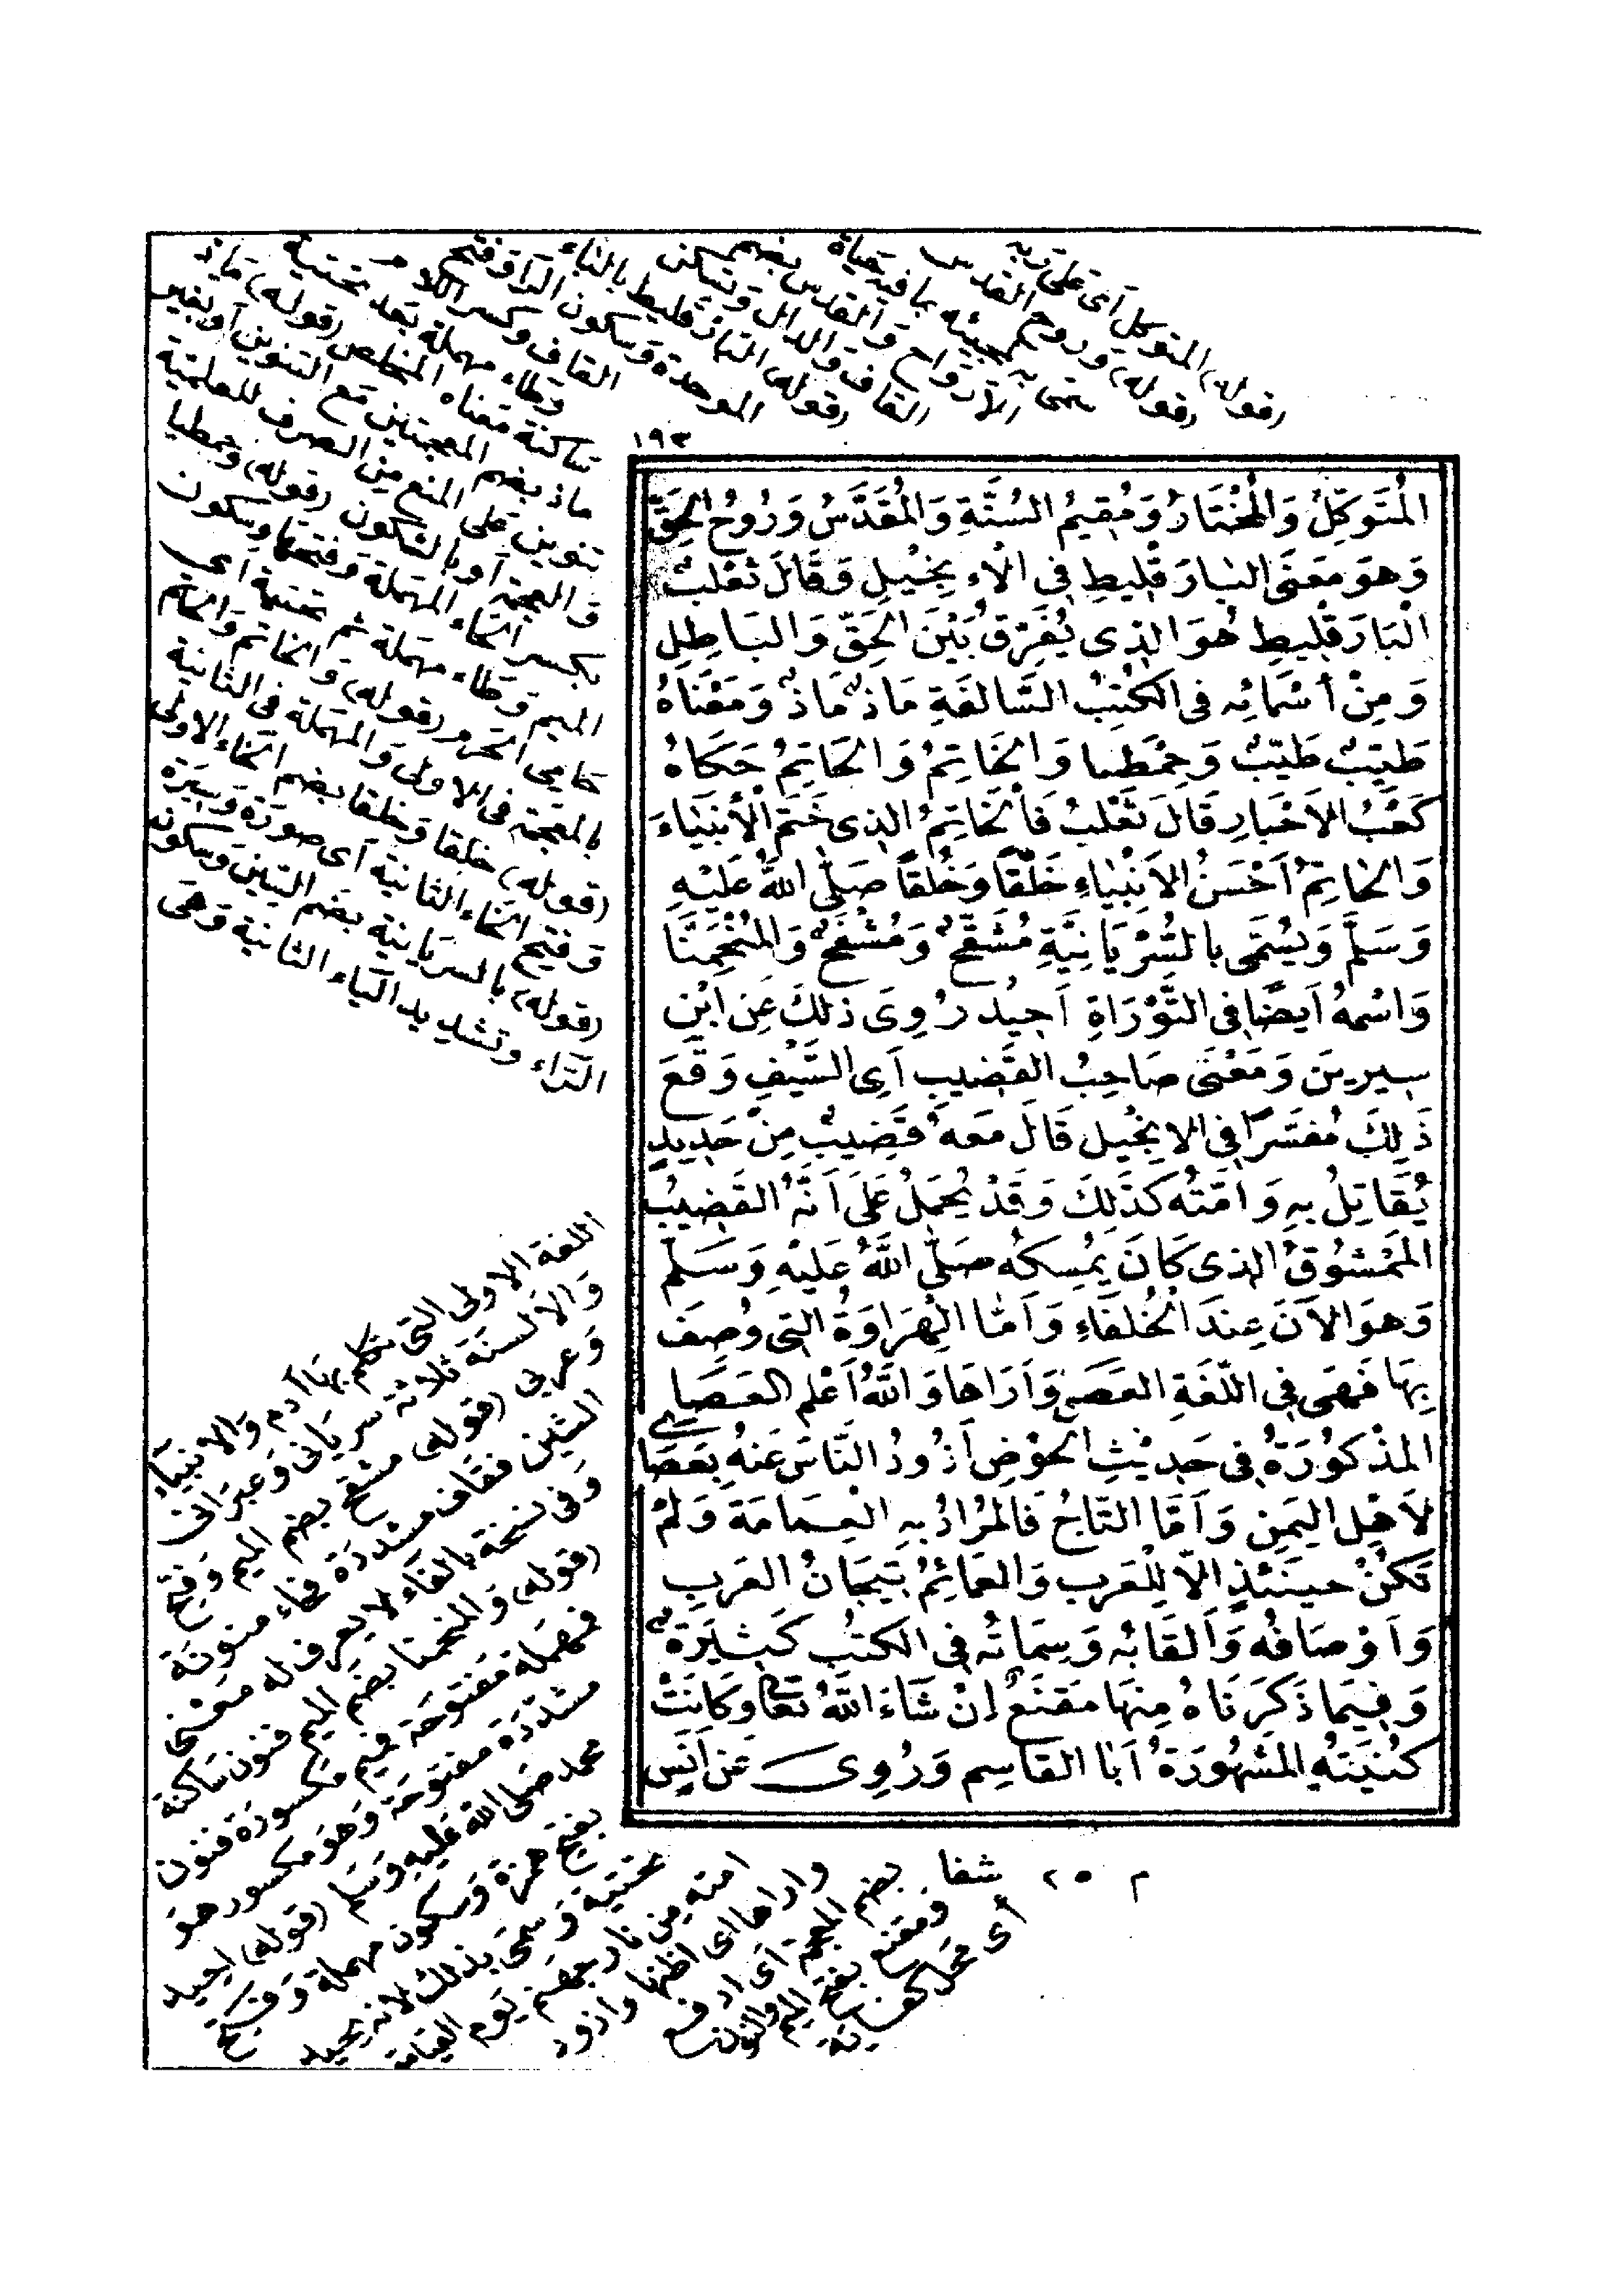 ١٩٣
المُتَوَكِّلُ وَالمُخْتَارُ وَمُقِيمُ السُنَّةِ وَالمُقَدَّسُ وَرُوحُ الحَقِّ
وَهوَ مَعنَى البَارَقْلِيطِ فِى الاءِنجِيلِ وَقَالَ ثَعْلَبٌ
الْبَارَقْلِيطِ هُوَ الذِى يُفَرِّقُ بَيْنَ الحَقِّ وَالبَاطِلِ
وَمِنْ أسْمَائِهِ فى الكُتِبُ السَّالفَةِ مَاذٌ مَاذٌ وَمَعْنَاهُ
طَيِّبٌ طَيِّبٌ وَحِمْطَيا وَالخَاتِمُ وَالحَاتِمُ حَكَاهُ
كَعْبُ الاَحْبَارِ قَالَ ثَعْلَبُ فَالْخَاتِمُ الذِى خَتَمَ الْأَنْبِيَاءَ
وَالحَاتِمُ اَحْسَنُ الاَنْبِيَاءِ خَلْقًا وَخُلقًا صَلَّى اللهُ عَليْهِ
وَسَلَّمَ وَيُسَمَّى بالسُّرْيَانِيَّةِ مُشَقَّحٌ وَمُشَفَّحٌ وَالمُنْحَمِنَّا
وَاسْمهُ اَيضًا فِى التَّوْرَاةِ اَحِيُدُ رُوِىَ ذلكَ عِن ابْنِ
سِيرِينَ وَمَعْنَى صَاحِبُ القَضِيبِ اَىِ السَّيْفِ وَقَعَ
ذَلِكَ مُفَسَّرًا فِى الاِنجْيل قَالَ مَعَهُ قَضِيبٌ مِنْ حَدِيدٍ
يُقَاتِلُ بهِ وَاُمَّتُه كَذَلِكَ وَقَدْ يُحْمَلُ عَلَى اَنَّهُ القَضِيبُ
المَمْشُوقُ الذى كَانَ يُمْسِكهُ صَلَّى اللَّهُ عَلَيْهِ وَسَلَّمَ
وَهوَ الآنَ عِندَ الْخُلفَاءِ وَاَمَّا الْهِرَاوَةُ التِى وُصِفَ
بِهَا فَهىَ فِى اللّغَةِ العَصَى وَاَرَاهَا وَاللَّهُ اَعْلم العَصَا
المَذْكوُرَةُ فى حَدِيْثِ الْحَوْضِ اَذُودُ النَّاسَ عَنهُ بِعَصَاىَ
لاَهْلِ اليَمَنِ وَاَمَّا التَّاجُ فَالمُرَادُ بهِ الْعِمَامَة وَلَمْ
تَكُنْ حينَئذٍ اِلاّ لِلْعَرب وَالعَمَائِمُ تِيجَانُ العَرَبِ
وَاَوْصَافُه وَاَلقَابُه وَسِمَاتُه فِى الكتُب كَثِيرَةٌ
وَفِيمَا ذَكَرنَاهُ مِنهَا مَقنَعٌ اِنْ شَاءَ اللَّهُ تعَالى وَكانَتْ
كُنيَتهُ المَشْهُورَةُ اَبَا القَاسِم وَرُوِىَ عَن اَنَسٍ
(قوله) المتوكل اى على ربه
(قوله) وروح القدس
الموحدة وسكون الرا وفتح
القاف وكسر اللام
وطاء مهملة بعد تحتية
ساكنة معناه المخلص (قوله) ماذ
ماذ بضم المعجتين مع التنوين أو بغير
تنوين على المنع من الصرف للعلمية
والعجمة أو بالسكون (قوله) وحمطيا
بكسر الحاء المهملة وفتحها وسكون
الميم وطاء مهملة ثم تحتية اى
حامى الحرم (قوله) والخاتم والحاتم
بالمعجة فى الاولى والمهملة فى الثانية
(قوله) خلقا وخلقا بضم الخاء الاولى
وفتح الخاء الثانية اى صورة وسيرة
(قوله) بالسريانية بضم السين وسكون
الراء وتشديد الياء الثانية وهى
اللغة الاولى التى تكلم بها آدم والانبيا
والالسنة ثلاثة سريانى وعبرانى
وعربى (قوله) مشقح بضم الميم وفتح
الشين فقاف مشددة فحاء منونة
وفى نسخة بالفاء لا يعرف له معنى
(قوله) والمنحمنا بضم الميم فنون ساكنة
فمهملة مفتوحة فميم مكسورة فنون
مشددة مفتوحة وهو مكسور هو
محمد صلى الله عليه وسلم (قوله) احيد
بفتح همزة وسكون مهملة وفتح
تحتية وسمى بذلك لانه يحيد
امته من نار جهنم يوم القيامة
واراها اى اظنها واذود
بضم المعجمة اى ادفع
ومقنع بفتح الميم والنون
أى محل
م ٢٥ شفا